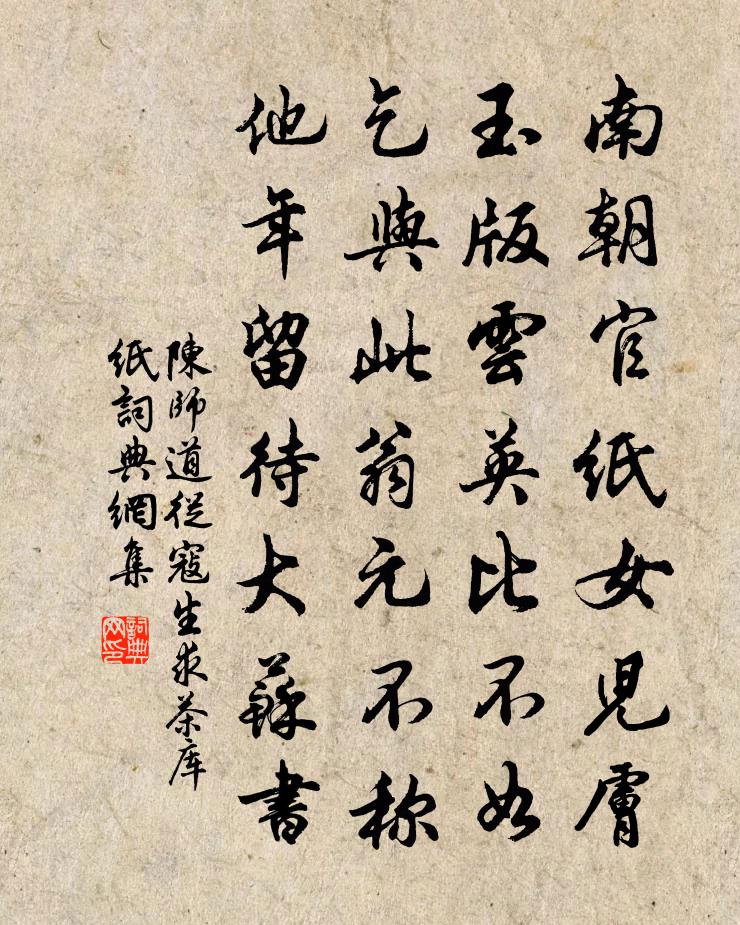 南朝官紙女兒膚
玉版雲英比不如
乞與此翁元不称
他年留待大蘇書
陳師道從寇生求茶库
紙詞典網集
詞典網印